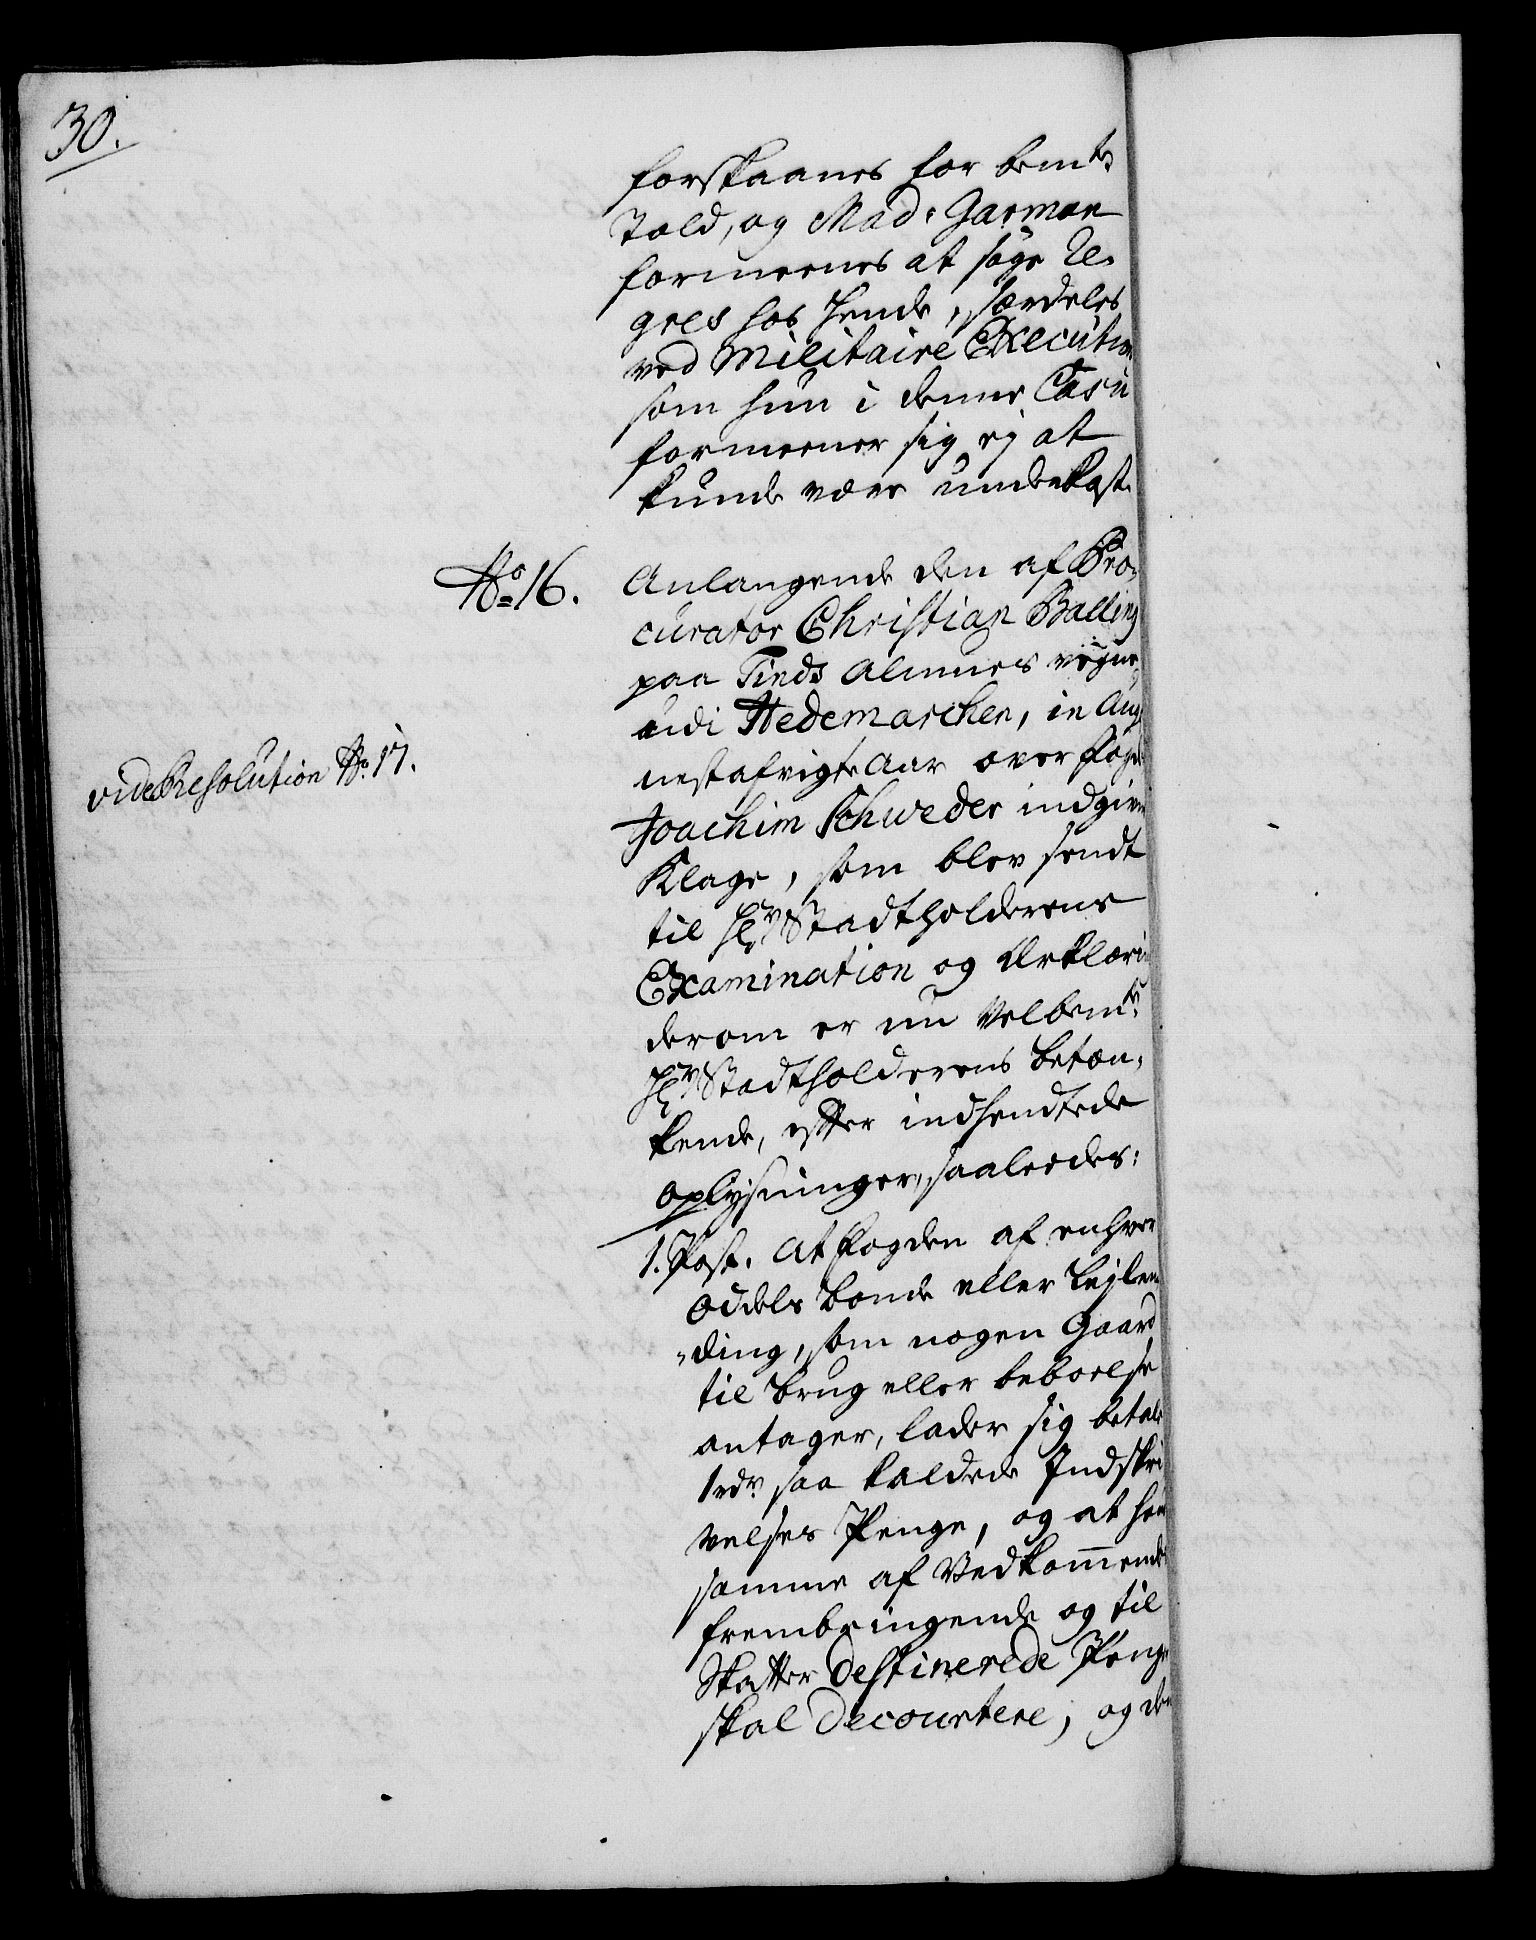 30.
forskaanes for bemte
Told, og Mad: Garman
formeenes at søge Re-
gres hos hende, særdeles
ved Militaire Execution
som hun i denne Casu
formeener sig ej at
kunde være underkast.
No 16.
Anlangende den af Pro-
curator Christian Balling
paa Tinds Almues vegne
udi Hedemarchen, in Aug
nestafvigte Aar over Fogd
Joachim Schweder indgivne
Klage, som blev sendt
til Hr Stadtholderens
vide Resolution No 17.
Examination og Erklæring
derom er nu Velbemte
Hr Stadtholderens Betæn-
kende, efter indhendtede
Oplysninger, saaleedes:
1. Post. At Fogden af enhver
Odels Bonde eller Lejlen-
ding, som nogen Gaard
til brug eller beboelse
antager, lader sig betale
1 rdr saa kaldede Indskri-
velses Penge, og at hand
samme af Vedkommende
frembringende og til
Skatter destinerede Penge
skal decourtere, og den